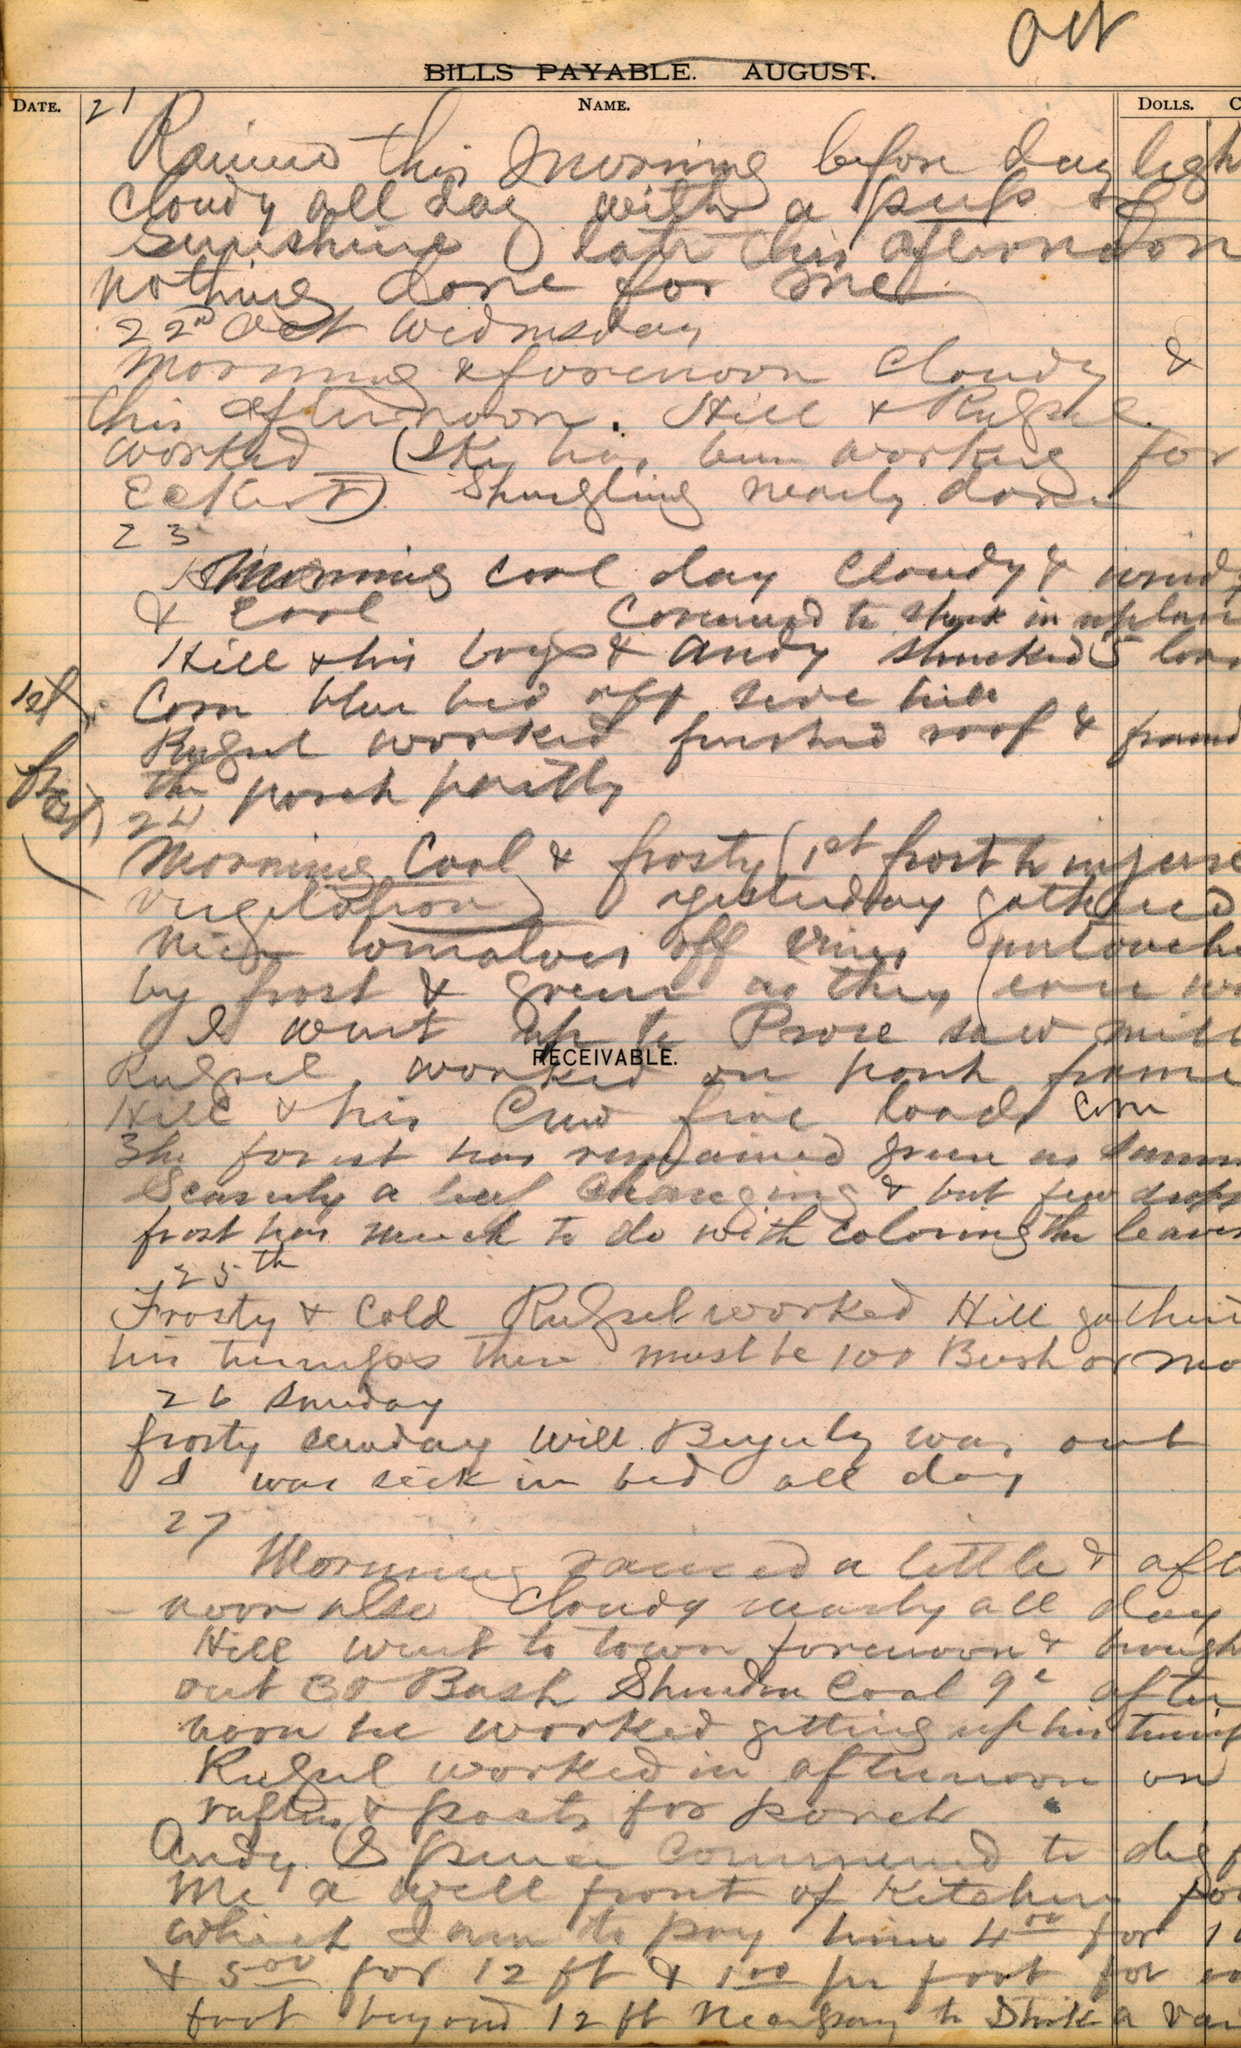 Oct
BILLS PAYABLE. AUGUST.
DATE. NAME. DOLLS. C
21
Rained this morning before day ligh
cloudy all day with a peep of
sunshine late this afternoon
nothing done for me
22nd Oct Wednesday
Morning & forenoon cloudy &
this afternoon. Hill & Rugsel
worked (Sky has been working for
Eckert) Shingling nearly done
23
Morning cool day cloudy & windy
& cool Commenced to shuck in
Hill & his boys & Andy shucked 5 loa
1st Corn blue bird off side hill
Rugsel worked finished roof & framed
the porch partly
24
Morning Cool & frosty (1st frost to injure
vegetation) yesterday gathered
nice tomatoes off vines untouche
by frost & green as they ever we
I went up to Prose saw mill
RECEIVABLE.
Rugsel worked on porch frame
Hill & his Crew five loads corn
The forest has remained green as summ
Scarcely a leaf changing & but few drops
frost has much to do with coloring the leaves
25th
Frosty & Cold Rugsel worked Hill gatheri
his turnips there must be 100 Bush or mo
26 Sunday
frosty sunday Will was out
I was sick in bed all day
27
Morning rained a little & afte
noon also Cloudy nearly all day
Hill went to town forenoon & brough
out 30 Bush Coal 9c after
noon he worked getting up his turnip
Rugsel worked in afternoon on
rafters & posts for porch
Andy commenced to dig f
Me a well front of Kitchen for
which I am to pay him 4.00 for 10
& 5.00 for 12 ft & 1.00 per foot for
foot beyond 12 ft Necessary to Strike a vai